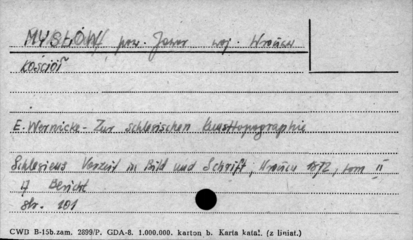 MYSŁÓW, pow. Jawor woj. Wrocław
KOŚCIÓŁ
E. Wernicke - Zur schlesischen Kunsttopographie
Schlesiens Vorzeit in Bild und Schrift, 1872, tom II
17 Bericht
str. 101
CWD B-15b.zam. 2899/P. GDA-8. 1.000.000. karton b. Karta katal. (z liniat.)